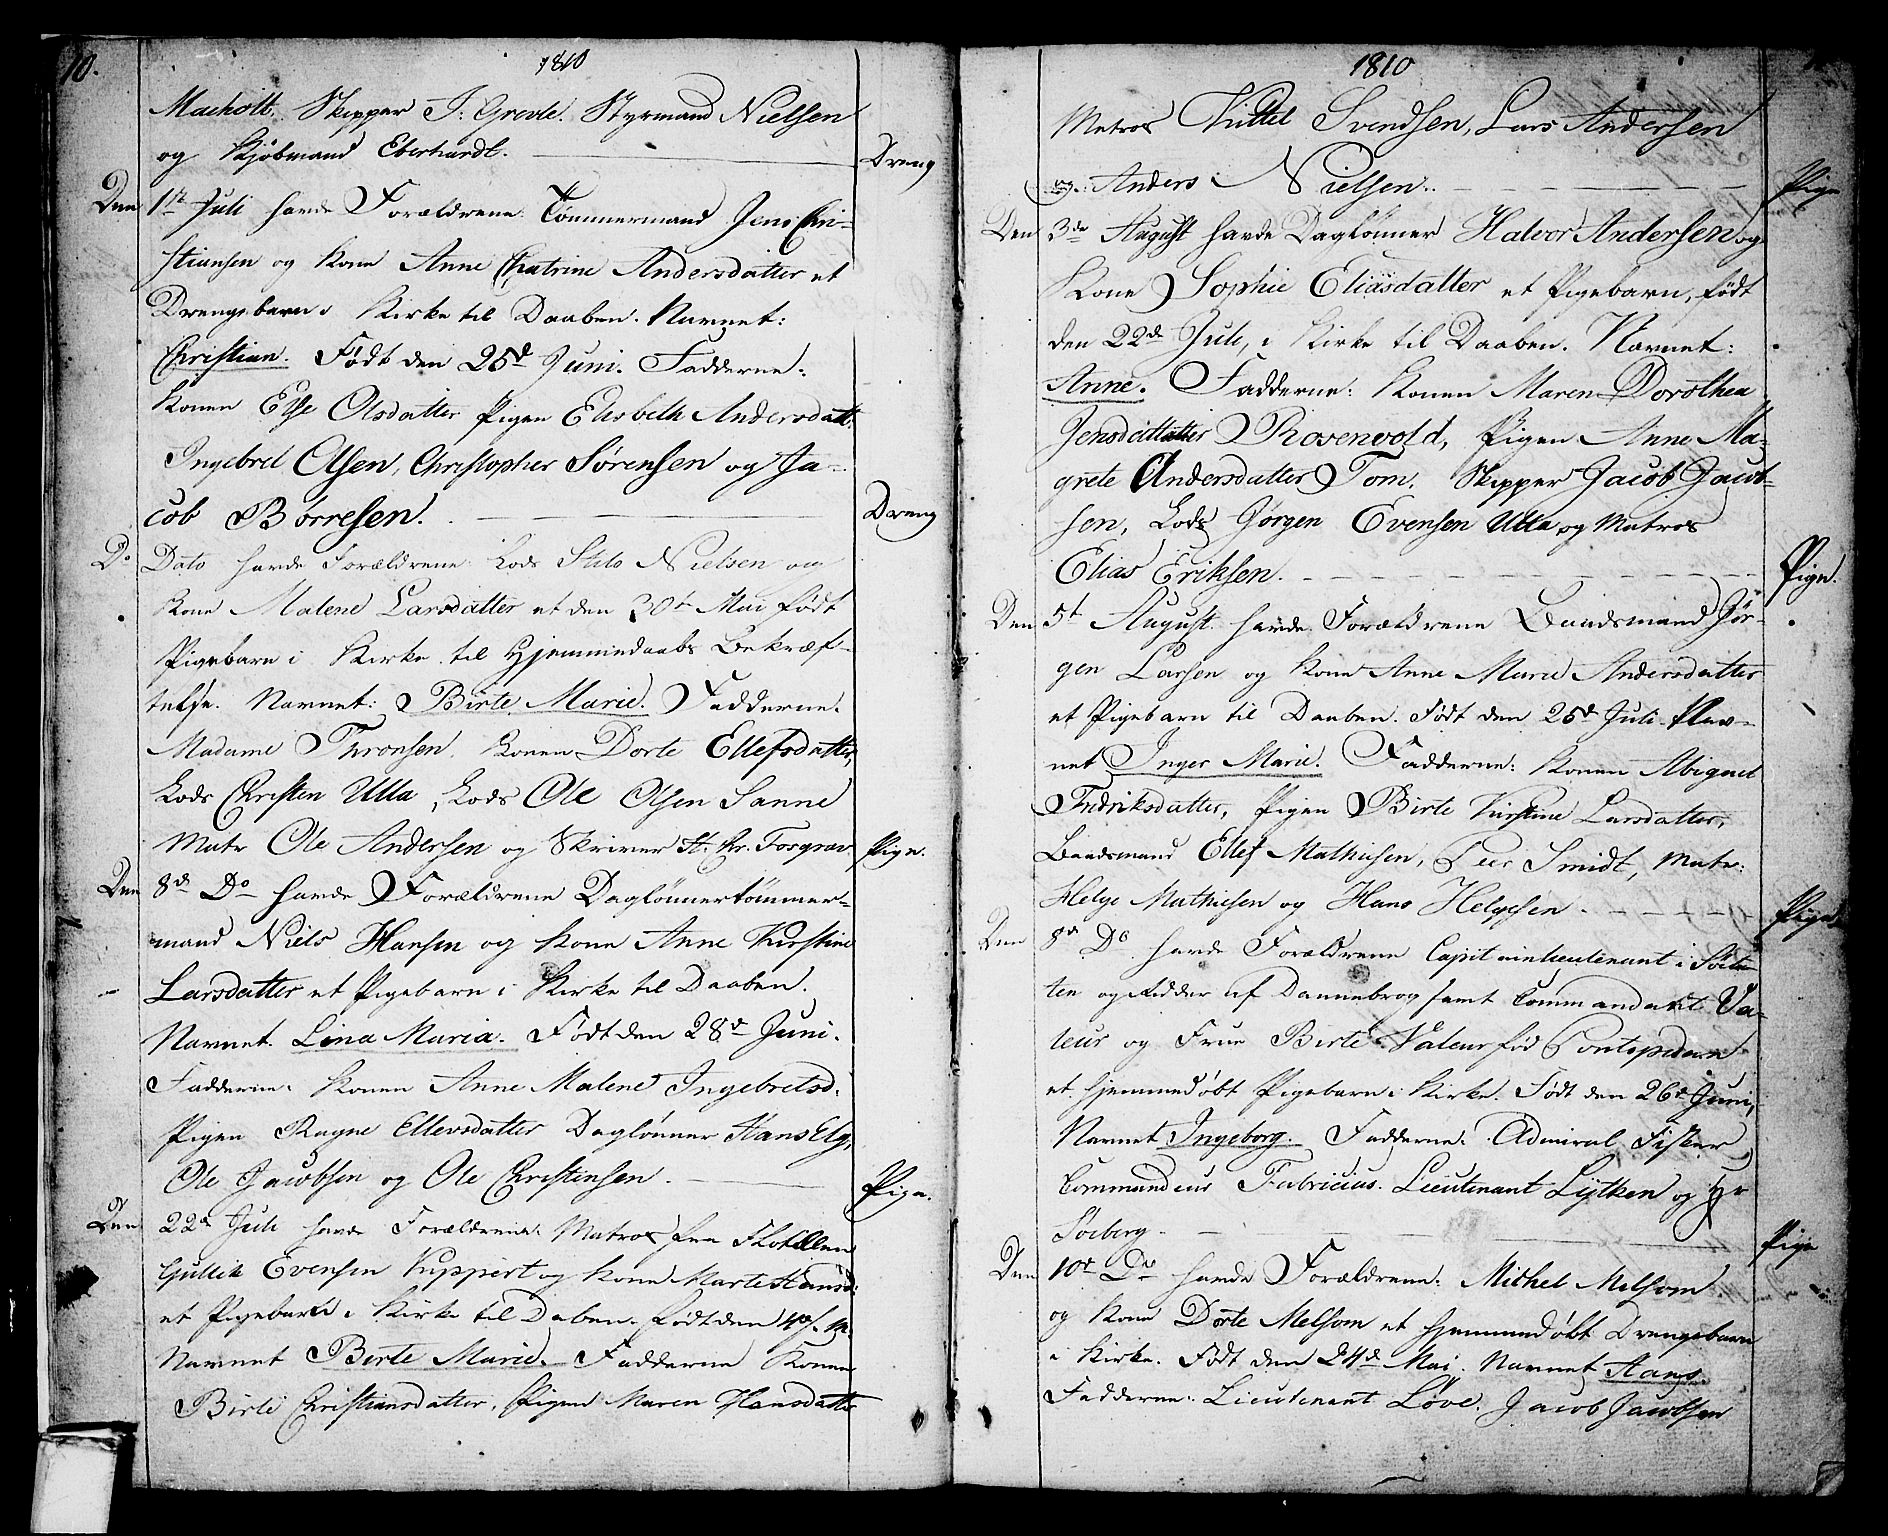 10.
1810
Macholt. Skipper J: Grevle. Styrmand Nielsen
og Kjøbmand Eberhardt. Dreng
Den 1ste Juli havde Forældrene: Tømmermand Jens Chri-
stiansen og Kone Anne Chatrine Andersdatter et
Drengebarn i Kirke til Daaben. Navnet:
Christian. Født den 25d Juni. Fadderne:
Konen Else Olsdatter Pigen Elisbeth Andersdatt:
Ingebret Olsen, Christopher Sørensen og Ja-
cob Børresen. Dreng
Do Dato havde Forældrene Lods Nielsen og
Kone Malene Larsdatter et den 30t Mai født
Pigebarn i Kirke til Hjemmedaabs Bekræf-
telse. Navnet: Birte Marie. Fadderne.
Madame Thronsen. Konen Dorte Ellefsdatter,
Lods Christen Ulla, Lods Ole Olsen Sanne
Matr Ole Andersen og Skriver H. Chr. Forgrav. Pige.
Den 8d Do havde Forældrene Daglønnertømmer-
mand Niels Hansen og Kone Anne Kirstine
Larsdatter et Pigebarn i Kirke til Daaben.
Navnet. Lina Maria. Født den 28d Juni.
Fadderne. Konen Anne Malene Ingebretsd:
Pigen Ragne Ellevsdatter Daglønner Hans Elg,
Ole Jacobsen og Ole Christensen. Pige.
Den 22d Juli havde Forældrene: Matros fra Flotillen
Gullik Evensen og Kone Marte Hansd:
et Pigebarn i Kirke til Daben. Født den
Navnet Birte Marie. Fadderne Konen
Birte Christiansdatter, Pigen Maren Hansdatter
1810
Matros Kittel Svendsen, Lars Andersen
og Anders Nielsen. Pige
Den 3de August havde Daglønner Halvor Andersen og
Kone Sophie Eliasdatter et Pigebarn, født
den 22de Juli, i Kirke til Daaben. Navnet:
Anne. Fadderne: Konen Maren Dorothea
Jensdatter Rosenvold, Pigen Anne Ma-
grete Andersdatter Tom. Skipper Jacob Jacob-
sen, Lods Jørgen Evensen Ulla og Matros
Elias Eriksen. Pige.
Den 5t August havde Forældrene Baadsmand Jør-
gen Larsen og Kone Anne Marie Andersdatter
et Pigebarn til Daaben. Født den 25d Juli. Nav-
net Inger Marie. Fadderne: Konen Abigael
Fredriksdatter, Pigen Birte Kirstine Larsdatter,
Baadsmand Ellef Mathiesen, Peer Smidt, Matr:
Helge Mathiesen og Hans Helgesen. Pige
Den 8d Do havde Forældrene Capitainlieutenant i Søeta-
ten og Ridder af Dannebrog samt Commandant Va-
leur og Frue Birte Valeur fød Pontopidan
et hjemmedøbt Pigebarn i Kirke. Født den 26d Juni,
Navnet Ingeborg. Fadderne: Admiral Fisker
Commandeur Fabricius. Lieutenant Lytken og Hr
Søeberg. Pige
Den 10d Do havde Forældrene: Michel Melsom
og Kone Dorte Melsom et hjemmedøbt Drengebarn
i Kirke. Født den 24de Mai. Navnet Hans.
Fadderne: Lieutenant Løve. Jacob Jacobsen